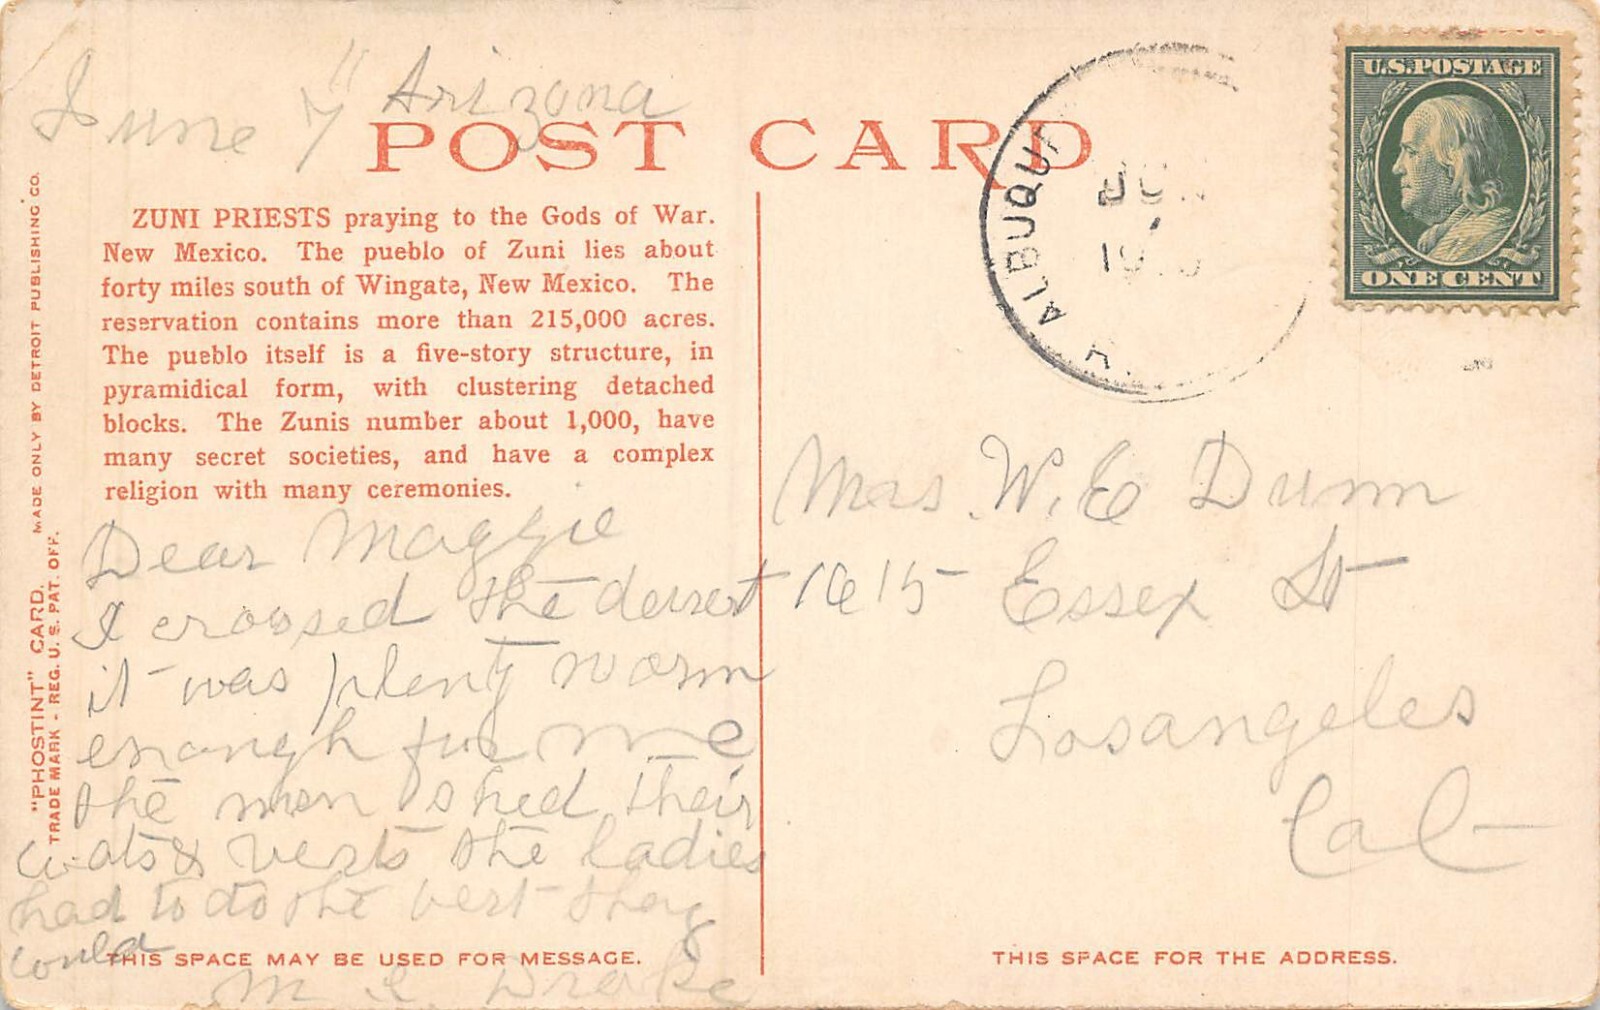 June 7" Arizona
POST CARD
ZUNI PRIESTS praying to the Gods of War.
New Mexico. The pueblo of Zuni lies about
forty miles south of Wingate, New Mexico. The
reservation contains more than 215,000 acres.
The pueblo itself is a five-story structure, in
pyramidical form, with clustering detached
blocks. The Zunis number about 1,000, have
many secret societies, and have a complex
religion with many ceremonies.
Dear Maggie
I crossed the desert
it was plenty worm
enough for me
the men shed their
coats & vests the ladies
had to do the best they
could
M E Drake
THIS SPACE MAY BE USED FOR MESSAGE.
"PHOSTINT" CARD. MADE ONLY BY DETROIT PUBLISHING CO.
TRADE MARK - REG. U. S. PAT. OFF.
ALBUQU
JUN
U.S.POSTAGE
ONE CENT
Mrs. W. E Dunn
1615 Essex St
Losangeles
Cal
THIS SPACE FOR THE ADDRESS.